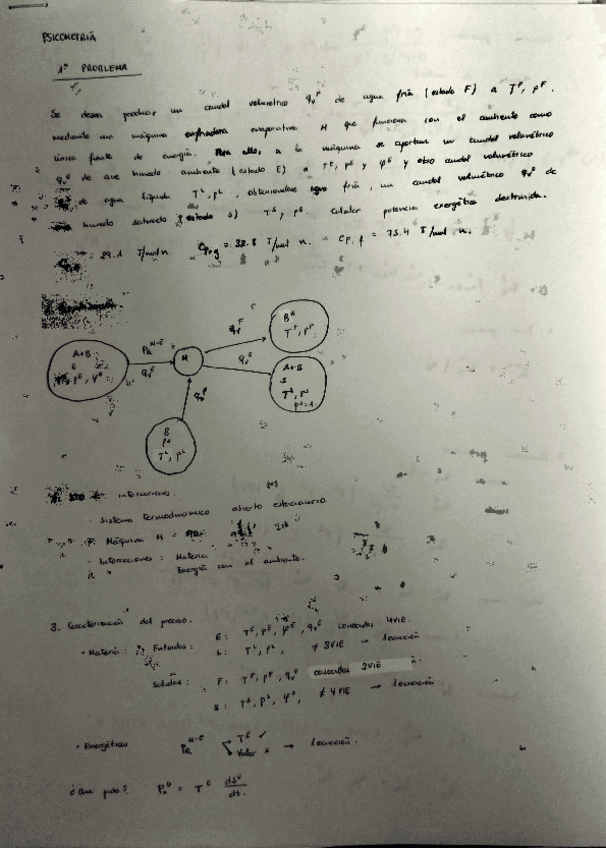 PSICOMETRÍA
1º PROBLEMA
Se desea producir un caudal volumétrico qvF de agua fría (estado F) a TF, pF.
mediante una máquina enfriadora evaporativa M que funciona con el ambiente como
única fuente de energía. Para ello, a la máquina se aportan un caudal volumétrico
qvE de aire húmedo ambiente (estado E) a TE, pE y φE y otro caudal volumétrico
de agua líquida TL, pL, obteniéndose agua fría, un caudal volumétrico qvS de
húmedo saturado (estado S) TS, pS. Calcular potencia exergética destruida.
= 29.1 J/mol K = 32.8 J/mol K. Cp,f = 75.4 J/mol K.
A+B
E
pE, φE
qvE
M
qvF
TF, pF
qvS
A+B
S
TS, pS
B
TL, pL
interacciones.
Sistema termodinámico abierto estacionario.
Máquina M =
Interacciones: Materia
Energía con el ambiente.
3. Caracterización del proceso.
• Materia: Entradas: E: TE, pE, φE, qvE conocidos 4VIE
L: TL, pL, ≠ 3VIE → 1 ecuación
Salidas: F: TF, pF, qvF conocidos 3VIE
S: TS, pS, φS, ≠ 4VIE → 1 ecuación
• Energéticas TE ✓
Valor x → 1 ecuación.
¿Que pide? = TE dSU
dt.